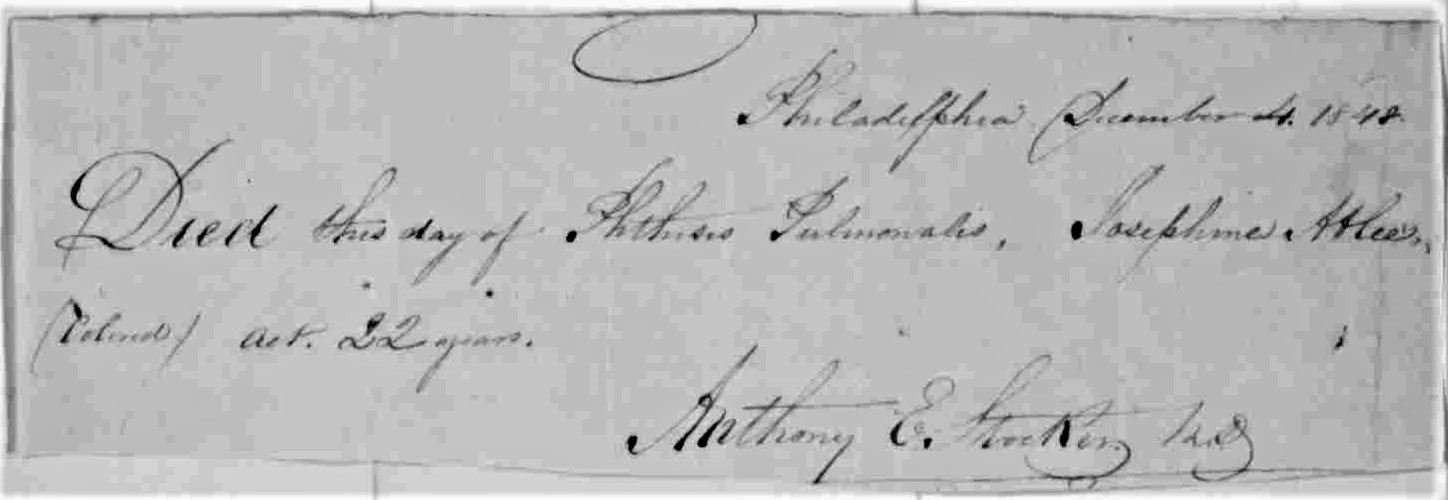 Philadelphia December 4. 1848.
Died this day of Phthisis Pulmonalis, Josephine Atlee,
(Colored) aet. 22 years.
Anthony E. Stocker MD